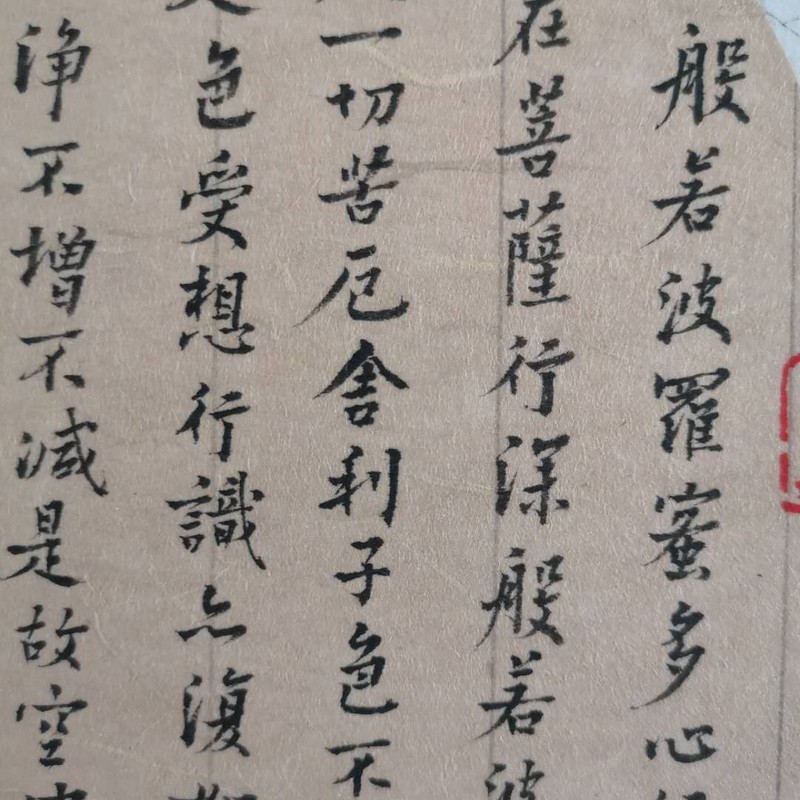 般若波羅蜜多心
在菩薩行深般若波
一切苦厄舍利子色不
色受想行識亦復
淨不增不減是故空